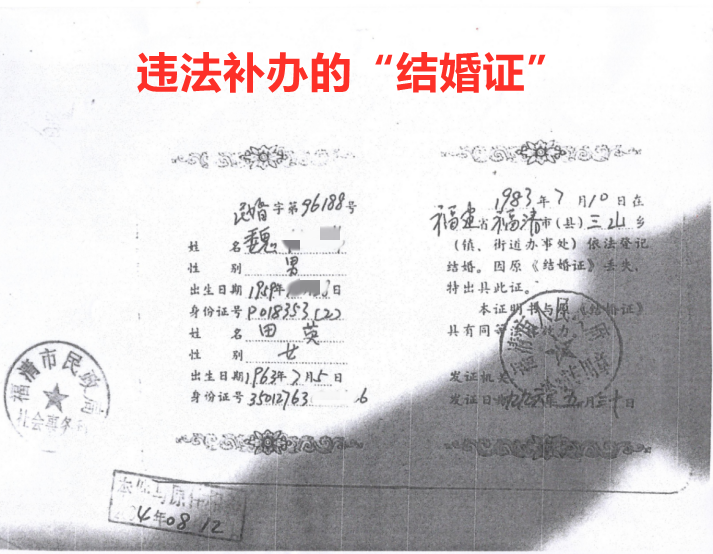 违法补办的“结婚证”
民婚字第96188号
姓 名 魏
性 别 男
出生日期1959年 日
身份证号P018353(2)
姓 名 田 英
性 别 女
出生日期1963年7月5日
身份证号35012763 6
1983年7月10日在
福建省福清市(县)三山乡
(镇、街道办事处)依法登记
结婚。因原《结婚证》丢失,
特出具此证。
本证明书与原《结婚证》
具有同等法律效力
发证机关
发证日期九九六年五月三十日
福清市民政局
社会事务
福清市人民
本件与原件
年08 12